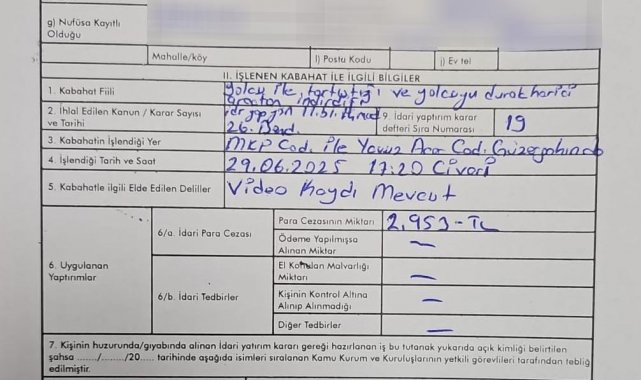 g) Nüfusa Kayıtlı
Olduğu
Mahalle/köy
I) Posta Kodu
j) Ev tel
II. İŞLENEN KABAHAT İLE İLGİLİ BİLGİLER
1. Kabahat Fiili
yolcu ile tartıştığı ve yolcuyu durak harici
araçtan indirdiği
2. İhlal Edilen Kanun / Karar Sayısı
ve Tarihi
26. Bend.
9. İdari yaptırım karar
defteri Sıra Numarası
19
3. Kabahatin İşlendiği Yer
MKP Cad. ile Yavuz Acar Cad. Güzergahında
4. İşlendiği Tarih ve Saat
29.06.2025 17:20 Civarı
5. Kabahatle ilgili Elde Edilen Deliller
Video Kaydı Mevcut
6. Uygulanan
Yaptırımlar
6/a. İdari Para Cezası
Para Cezasının Miktarı
2.953-TL
Ödeme Yapılmışsa
Alınan Miktar
—
6/b. İdari Tedbirler
El Konulan Malvarlığı
Miktarı
—
Kişinin Kontrol Altına
Alınıp Alınmadığı
—
Diğer Tedbirler
—
7. Kişinin huzurunda/gıyabında alınan İdari yatırım kararı gereği hazırlanan iş bu tutanak yukarıda açık kimliği belirtilen
şahsa ......../......../20..... tarihinde aşağıda isimleri sıralanan Kamu Kurum ve Kuruluşlarının yetkili görevlileri tarafından tebliğ
edilmiştir.